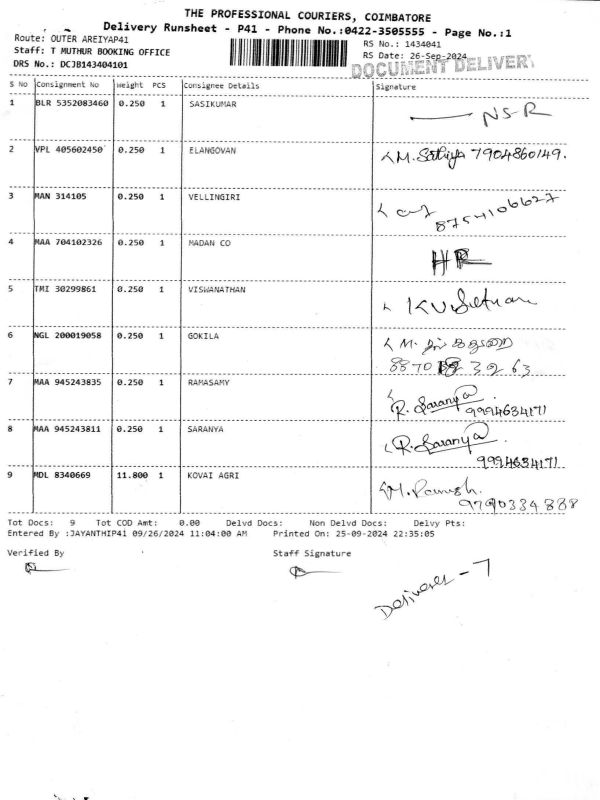 THE PROFESSIONAL COURIERS, COIMBATORE
Delivery Runsheet - P41 - Phone No.:0422-3505555 - Page No.:1
Route: OUTER AREIYAP41 RS No.: 1434041
Staff: T MUTHUR BOOKING OFFICE RS Date: 26-Sep-2024
DRS No.: DCJB143404101 DOCUMENT DELIVERY
S No Consignment No Weight PCS Consignee Details Signature
1 BLR 5352083460 0.250 1 SASIKUMAR NSR
2 VPL 405602450 0.250 1 ELANGOVAN M. Sathya 7904860149.
3 MAN 314105 0.250 1 VELLINGIRI
8754106627
4 MAA 704102326 0.250 1 MADAN CO
5 TMI 30299861 0.250 1 VISWANATHAN
6 NGL 200019058 0.250 1 GOKILA M.
7 MAA 945243835 0.250 1 RAMASAMY R. Saranya
9994634171
8 MAA 945243811 0.250 1 SARANYA R. Saranya
9994634171
9 MDL 8340669 11.800 1 KOVAI AGRI M. Ramesh.
9790334888
Tot Docs: 9 Tot COD Amt: 0.00 Delvd Docs: Non Delvd Docs: Delvy Pts:
Entered By :JAYANTHIP41 09/26/2024 11:04:00 AM Printed On: 25-09-2024 22:35:05
Verified By Staff Signature
Deliveres - 7